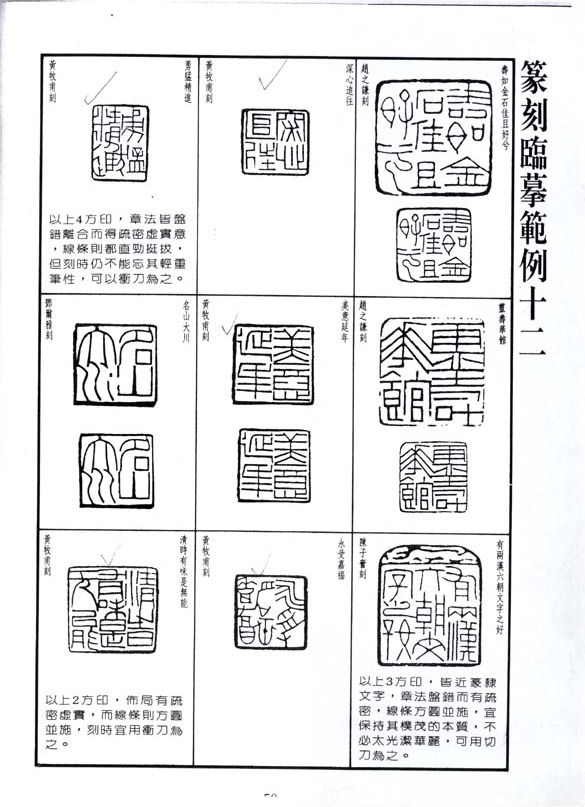 篆刻臨摹範例十二
壽如金石佳且好兮
趙之謙刻
靈壽華館
趙之謙刻
有兩漢六朝文字之好
陳子奮刻
以上3方印，皆近篆隸
文字，章法盤錯而有疏
密，線條方圓並施，宜
保持其樸茂的本質，不
必太光潔華麗，可用切
刀為之。
深心追往
黃牧甫刻
美意延年
黃牧甫刻
永受嘉福
黃牧甫刻
勇猛精進
黃牧甫刻
以上4方印，章法皆盤
錯離合而得疏密虛實意
，線條則都直勁挺拔，
但刻時仍不能忘其輕重
筆性，可以衝刀為之。
名山大川
鄧爾雅刻
清時有味是無能
黃牧甫刻
以上2方印，佈局有疏
密虛實，而線條則方圓
並施，刻時宜用衝刀為
之。